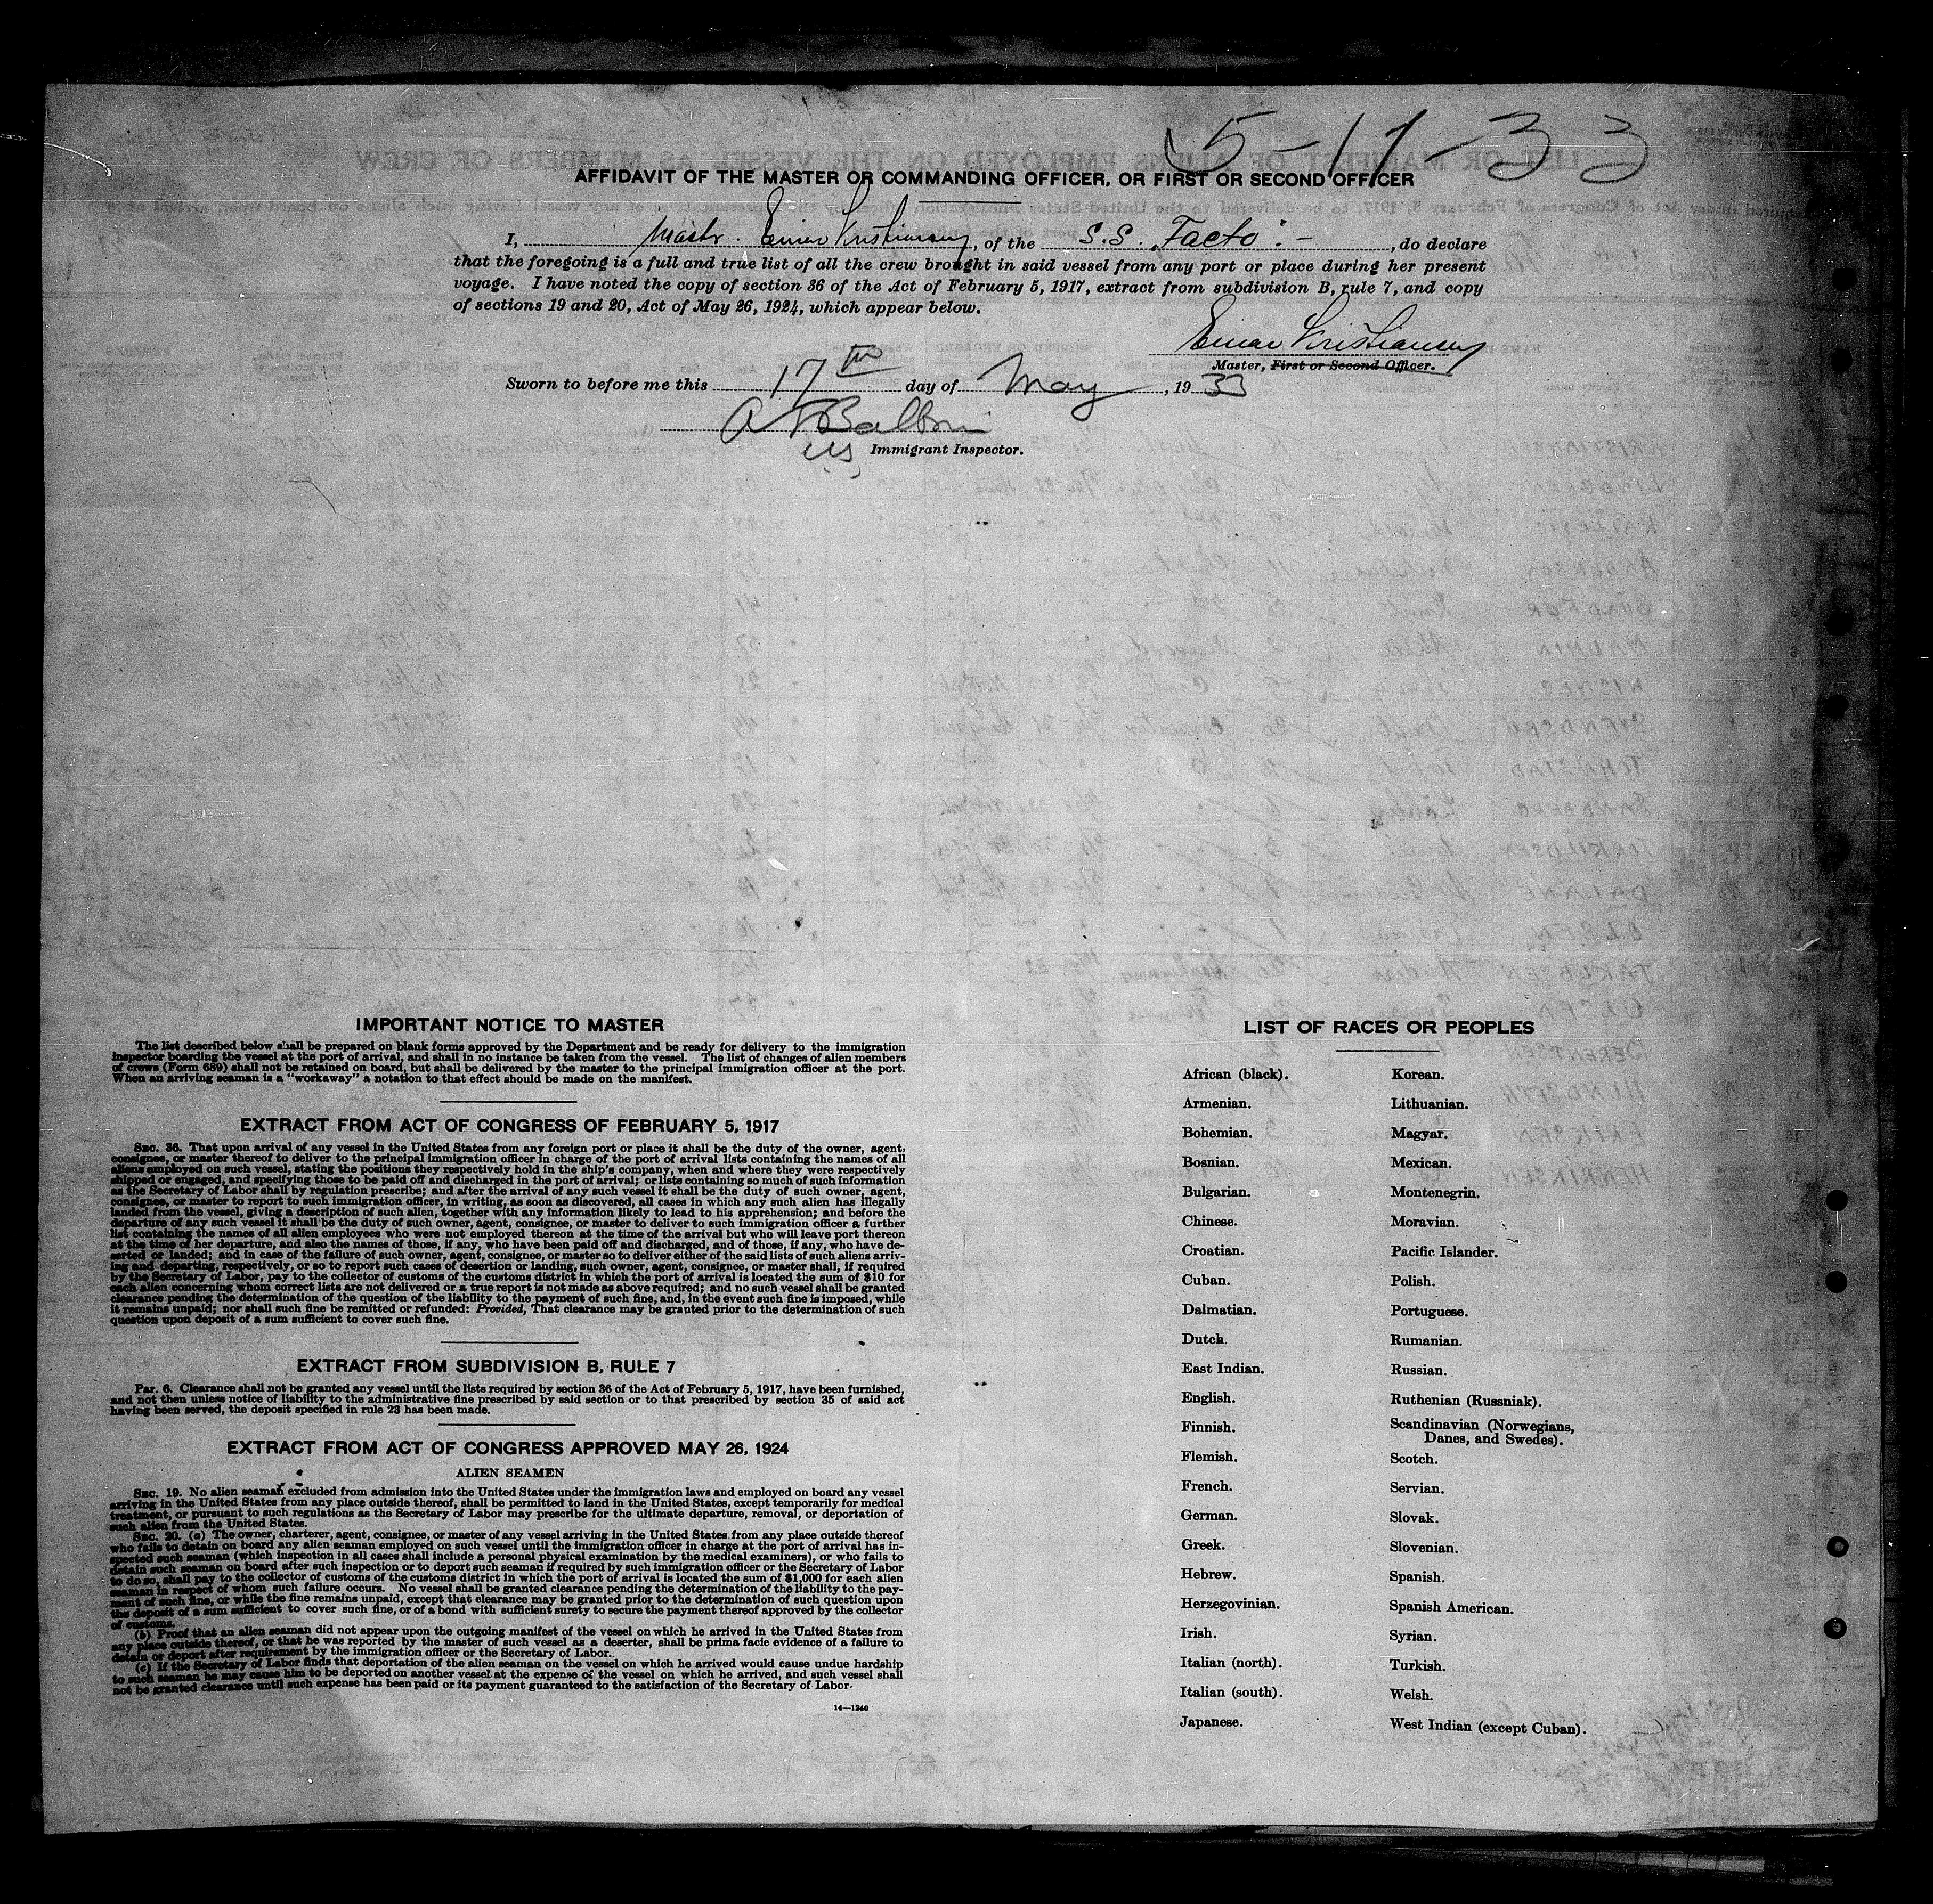 5-17-33
AFFIDAVIT OF THE MASTER OR COMMANDING OFFICER, OR FIRST OR SECOND OFFICER
I, Mastr. Einar Kristiansen, of the S.S. "Facto".-, do declare
that the foregoing is a full and true list of all the crew brought in said vessel from any port or place during her present
voyage. I have noted the copy of section 36 of the Act of February 5, 1917, extract from subdivision B, rule 7, and copy
of sections 19 and 20, Act of May 26, 1924, which appear below.
Einar Kristiansen
Master, First or Second Officer.
Sworn to before me this 17th day of May, 1933
US Immigrant Inspector.
IMPORTANT NOTICE TO MASTER
The list described below shall be prepared on blank forms approved by the Department and be ready for delivery to the immigration
inspector boarding the vessel at the port of arrival, and shall in no instance be taken from the vessel. The list of changes of alien members
of crews (Form 689) shall not be retained on board, but shall be delivered by the master to the principal immigration officer at the port.
When an arriving seaman is a "workaway" a notation to that effect should be made on the manifest.
EXTRACT FROM ACT OF CONGRESS OF FEBRUARY 5, 1917
SEC. 36. That upon arrival of any vessel in the United States from any foreign port or place it shall be the duty of the owner, agent,
consignee, or master thereof to deliver to the principal immigration officer in charge of the port of arrival lists containing the names of all
aliens employed on such vessel, stating the positions they respectively hold in the ship's company, when and where they were respectively
shipped or engaged, and specifying those to be paid off and discharged in the port of arrival; or lists containing so much of such information
as the Secretary of Labor shall by regulation prescribe; and after the arrival of any such vessel it shall be the duty of such owner, agent,
consignee, or master to report to such immigration officer, in writing, as soon as discovered, all cases in which any such alien has illegally
landed from the vessel, giving a description of such alien, together with any information likely to lead to his apprehension; and before the
departure of any such vessel it shall be the duty of such owner, agent, consignee, or master to deliver to such immigration officer a further
list containing the names of all alien employees who were not employed thereon at the time of the arrival but who will leave port thereon
at the time of her departure, and also the names of those, if any, who have been paid off and discharged, and of those, if any, who have de-
serted or landed; and in case of the failure of such owner, agent, consignee, or master so to deliver either of the said lists of such aliens arriv-
ing and departing, respectively, or so to report such cases of desertion or landing, such owner, agent, consignee, or master shall, if required
by the Secretary of Labor, pay to the collector of customs of the customs district in which the port of arrival is located the sum of $10 for
each alien concerning whom correct lists are not delivered or a true report is not made as above required; and no such vessel shall be granted
clearance pending the determination of the question of the liability to the payment of such fine, and, in the event such fine is imposed, while
it remains unpaid; nor shall such fine be remitted or refunded: Provided, That clearance may be granted prior to the determination of such
question upon deposit of a sum sufficient to cover such fine.
EXTRACT FROM SUBDIVISION B, RULE 7
PAR. 6. Clearance shall not be granted any vessel until the lists required by section 36 of the Act of February 5, 1917, have been furnished,
and not then unless notice of liability to the administrative fine prescribed by said section or to that prescribed by section 35 of said act
having been served, the deposit specified in rule 23 has been made.
EXTRACT FROM ACT OF CONGRESS APPROVED MAY 26, 1924
ALIEN SEAMEN
SEC. 19. No alien seaman excluded from admission into the United States under the immigration laws and employed on board any vessel
arriving in the United States from any place outside thereof, shall be permitted to land in the United States, except temporarily for medical
treatment, or pursuant to such regulations as the Secretary of Labor may prescribe for the ultimate departure, removal, or deportation of
such alien from the United States.
SEC. 20. (a) The owner, charterer, agent, consignee, or master of any vessel arriving in the United States from any place outside thereof
who fails to detain on board any alien seaman employed on such vessel until the immigration officer in charge at the port of arrival has in-
spected such seaman (which inspection in all cases shall include a personal physical examination by the medical examiners), or who fails to
detain such seaman on board after such inspection or to deport such seaman if required by such immigration officer or the Secretary of Labor
to do so, shall pay to the collector of customs of the customs district in which the port of arrival is located the sum of $1,000 for each alien
seaman in respect of whom such failure occurs. No vessel shall be granted clearance pending the determination of the liability to the pay-
ment of such fine, or while the fine remains unpaid, except that clearance may be granted prior to the determination of such question upon
the deposit of a sum sufficient to cover such fine, or of a bond with sufficient surety to secure the payment thereof approved by the collector
of customs.
(b) Proof that an alien seaman did not appear upon the outgoing manifest of the vessel on which he arrived in the United States from
any place outside thereof, or that he was reported by the master of such vessel as a deserter, shall be prima facie evidence of a failure to
detain or deport after requirement by the immigration officer or the Secretary of Labor.
(c) If the Secretary of Labor finds that deportation of the alien seaman on the vessel on which he arrived would cause undue hardship
to such seaman he may cause him to be deported on another vessel at the expense of the vessel on which he arrived, and such vessel shall
not be granted clearance until such expense has been paid or its payment guaranteed to the satisfaction of the Secretary of Labor.
14—1240
LIST OF RACES OR PEOPLES
African (black).
Armenian.
Bohemian.
Bosnian.
Bulgarian.
Chinese.
Croatian.
Cuban.
Dalmatian.
Dutch.
East Indian.
English.
Finnish.
Flemish.
French.
German.
Greek.
Hebrew.
Herzegovinian.
Irish.
Italian (north).
Italian (south).
Japanese.
Korean.
Lithuanian.
Magyar.
Mexican.
Montenegrin.
Moravian.
Pacific Islander.
Polish.
Portuguese.
Rumanian.
Russian.
Ruthenian (Russniak).
Scandinavian (Norwegians,
Danes, and Swedes).
Scotch.
Servian.
Slovak.
Slovenian.
Spanish.
Spanish American.
Syrian.
Turkish.
Welsh.
West Indian (except Cuban).